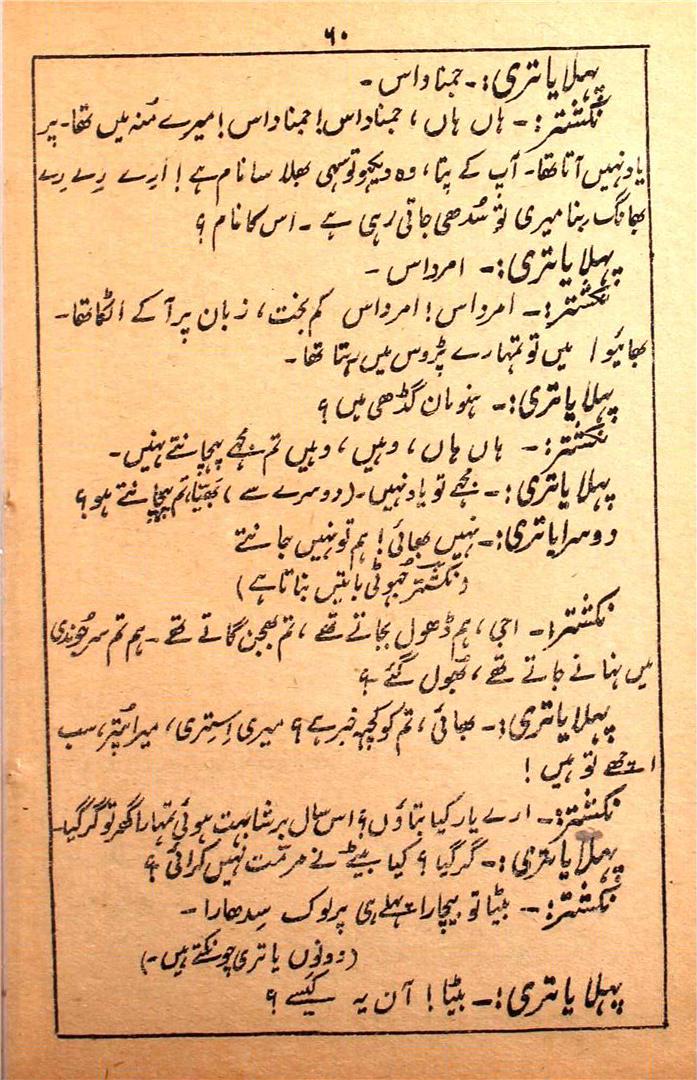 ۶۰
پہلا یاتری:۔ جمنا داس۔
نکشتر:۔ ہاں ہاں، جمنا داس! جمنا داس! میرے مُنہ میں تھا۔ پر
یاد نہیں آتا تھا۔ آپ کے پِتا، وہ دیکھو تو سہی بھلا سا نام ہے! اَرے رے رے
بھانگ بنا میری تو سُدھی جاتی رہی ہے۔ اس کا نام؟
پہلا یاتری:۔ امر داس۔
نکشتر:۔ امر داس! امر داس کم بخت، زبان پر آ کے اٹکا تھا۔
بھائیو! میں تو تمہارے پڑوس میں رہتا تھا۔
پہلا یاتری:۔ ہنومان گڈھی میں؟
نکشتر:۔ ہاں ہاں، وہیں، وہیں تم مجھے پہچانتے نہیں۔
پہلا یاتری:۔ مجھے تو یاد نہیں۔ (دوسرے سے) بَھیّا، تم پہچانتے ہو؟
دوسرا یاتری:۔ نہیں بھائی! ہم تو نہیں جانتے
(نکشتر جُھوٹی باتیں بناتا ہے)
نکشتر:۔ اجی، ہم ڈھول بجاتے تھے، تم بھجن گاتے تھے۔ ہم تم سرجُوندی
میں نہانے جاتے تھے، بُھول گئے؟
پہلا یاتری:۔ بھائی، تم کو کچھ خبر ہے؟ میری اِستِری، میرا پُتر، سب
اچھے تو ہیں!
نکشتر:۔ ارے یار کیا بتاؤں؟ اس سال برشا بہت ہوئی تمہارا گھر تو گر گیا۔
پہلا یاتری:۔ گر گیا؟ کیا بیٹے نے مرمّت نہیں کرائی؟
نکشتر:۔ بیٹا تو بیچارا پہلے ہی پرلوک سِدھارا۔
(دونوں یاتری چونکتے ہیں۔)
پہلا یاتری:۔ بیٹا! آن یہ کیسے؟